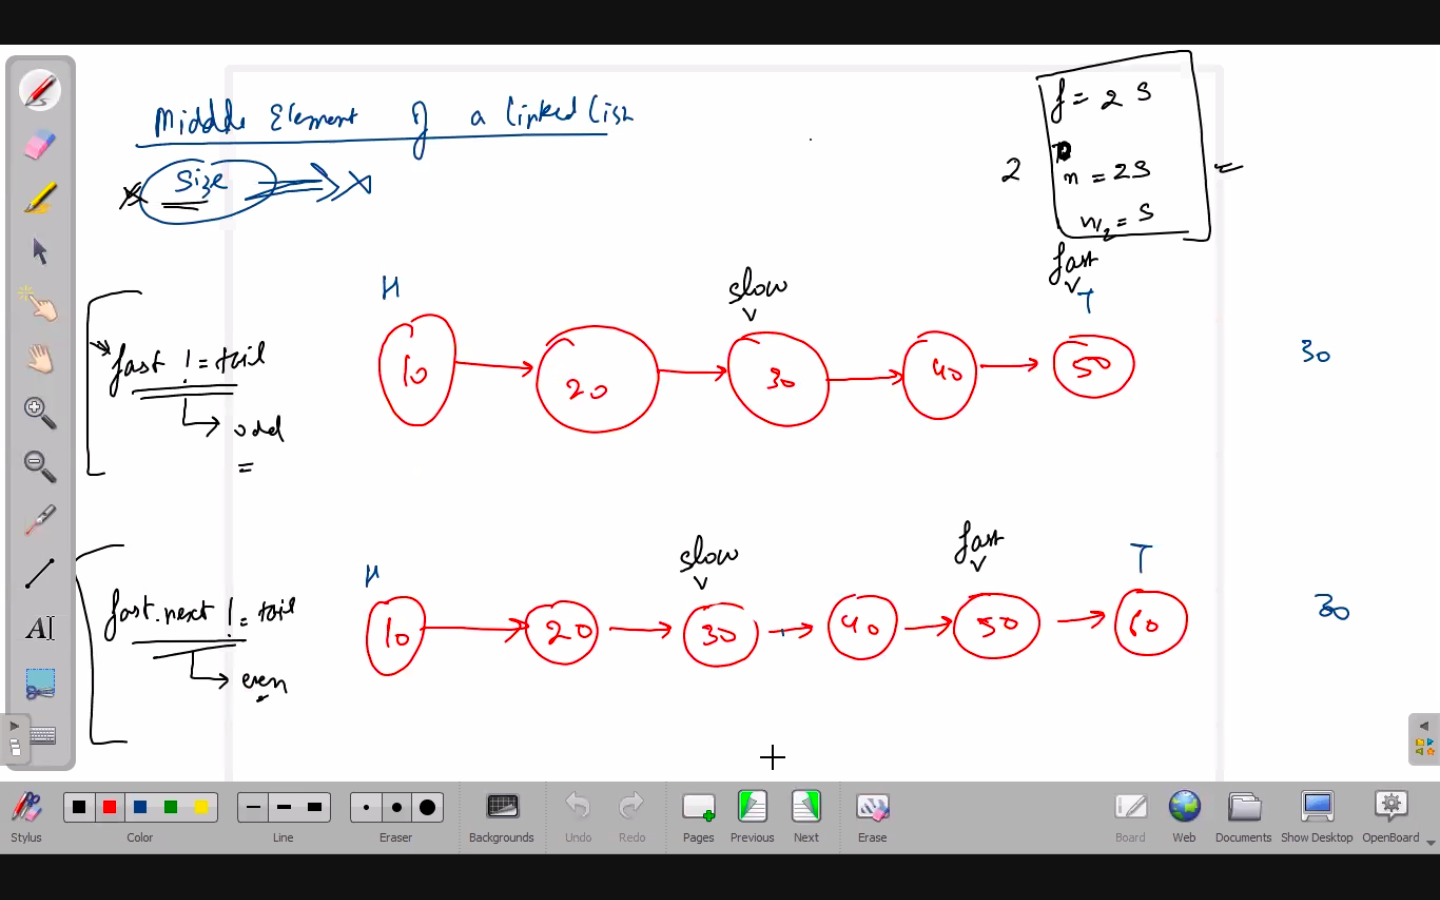 Middle Element Of a linked list
Size
f = 2 S
2
n = 2S
n/2 = S
fast
H
slow
T
fast != tail
10
20
30
40
50
30
odd
=
slow
fast
T
H
fast.next != tail
10
20
30
40
50
60
30
even
Stylus
Color
Line
Eraser
Backgrounds
Undo
Redo
Pages
Previous
Next
Erase
Board
Web
Documents
Show Desktop
OpenBoard